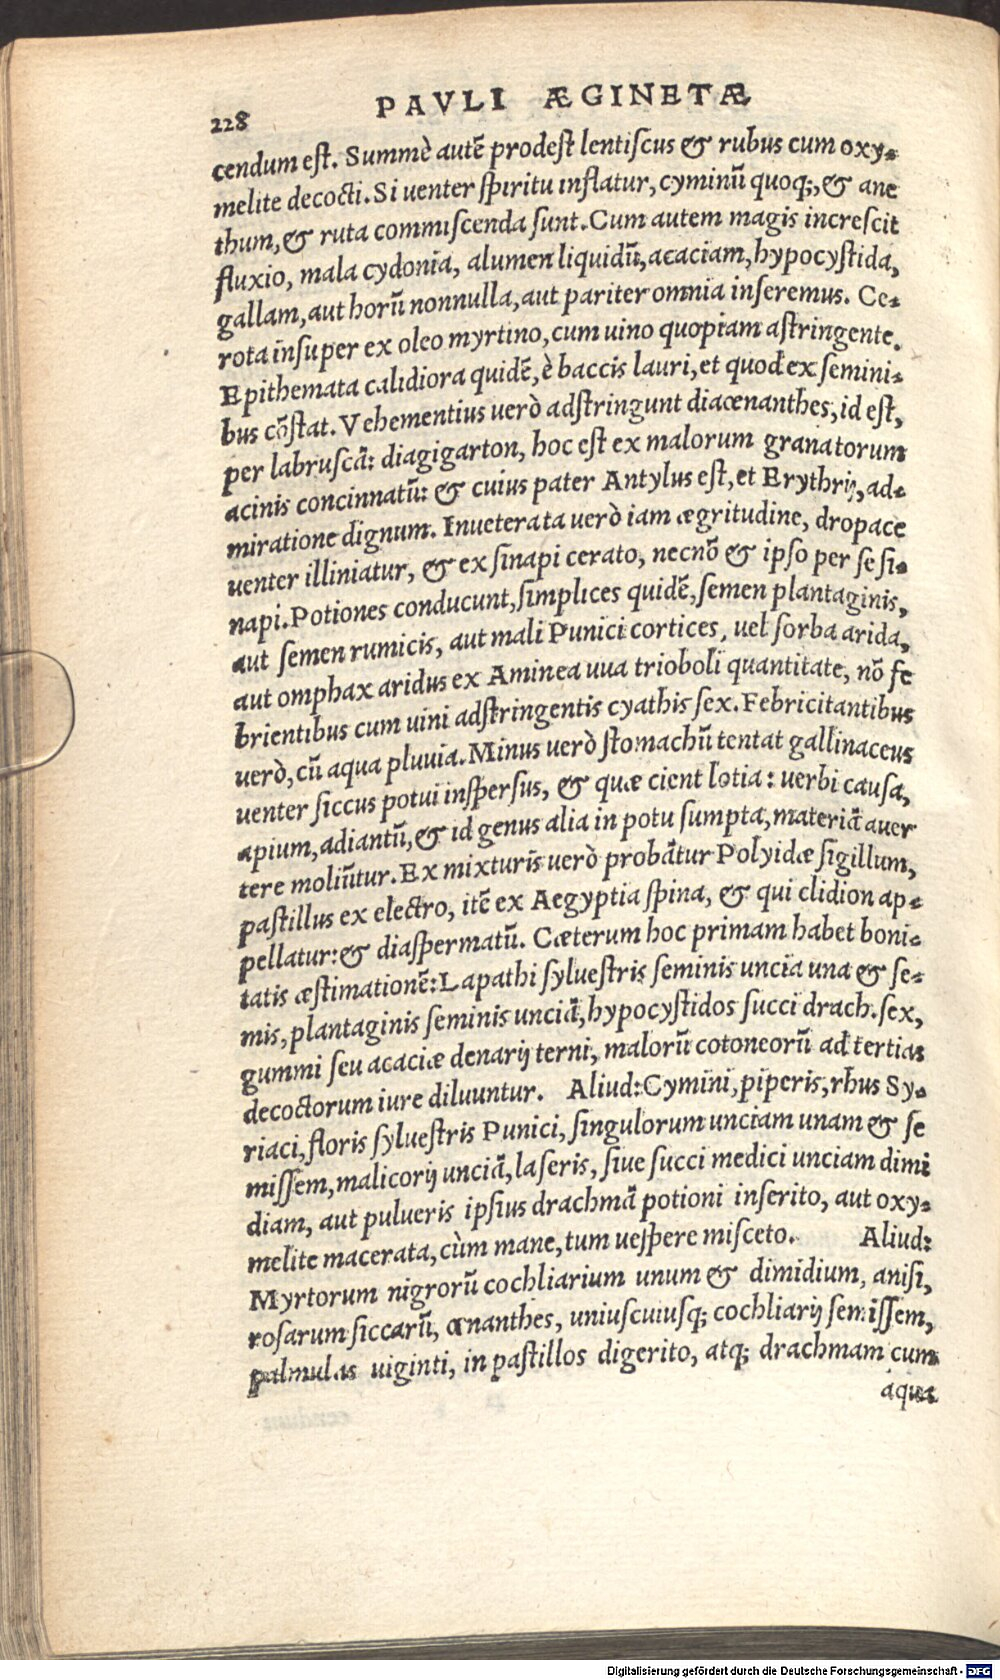 228
PAVLI ÆGINETÆ
cendum est. Summè autẽ prodest lentiscus & rubus cum oxy-
melite decocti. Si uenter spiritu inflatur, cyminũ quoq;, & ane
thum, & ruta commiscenda sunt. Cum autem magis increscit
fluxio, mala cydonia, alumen liquidũ, acaciam, hypocystida,
gallam, aut horũ nonnulla, aut pariter omnia inseremus. Ce-
rota insuper ex oleo myrtino, cum uino quopiam astringente.
Epithemata calidiora quidẽ, è baccis lauri, et quod ex semini-
bus cõstat. Vehementius uerò adstringunt diaœnanthes, id est,
per labruscã: diagigarton, hoc est ex malorum granatorum
acinis concinnatũ: & cuius pater Antylus est, et Erythrij, ad-
miratione dignum. Inueterata uerò iam ægritudine, dropace
uenter illiniatur, & ex sinapi cerato, necnõ & ipso per se si-
napi. Potiones conducunt, simplices quidẽ, semen plantaginis,
aut semen rumicis, aut mali Punici cortices, uel sorba arida,
aut omphax aridus ex Aminea uua trioboli quantitate, nõ fe
brientibus cum uini adstringentis cyathis sex. Febricitantibus
uerò, cũ aqua pluuia. Minus uerò stomachũ tentat gallinaceus
uenter siccus potui inspersus, & quæ cient lotia: uerbi causa,
apium, adiantũ, & id genus alia in potu sumpta, materiã auer
tere moliũtur. Ex mixturis uerò probãtur Polyidæ sigillum,
pastillus ex electro, itẽ ex Aegyptia spina, & qui clidion ap-
pellatur: & diaspermatũ. Cæterum hoc primam habet boni-
tatis æstimationẽ: Lapathi syluestris seminis uncia una & se-
mis, plantaginis seminis unciã, hypocystidos succi drach. sex,
gummi seu acaciæ denarij terni, malorũ cotoneorũ ad tertias
decoctorum iure diluuntur. Aliud: Cymini, piperis, rhus Sy-
riaci, floris syluestris Punici, singulorum unciam unam & se
missem, malicorij unciã, laseris, siue succi medici unciam dimi
diam, aut pulueris ipsius drachmã potioni inserito, aut oxy-
melite macerata, cùm mane, tum uespere misceto. Aliud:
Myrtorum nigrorũ cochliarium unum & dimidium, anisi,
rosarum siccarũ, œnanthes, uniuscuiusq; cochliarij semissem,
palmulas uiginti, in pastillos digerito, atq; drachmam cum
aqua
Digitalisierung gefördert durch die Deutsche Forschungsgemeinschaft - DFG